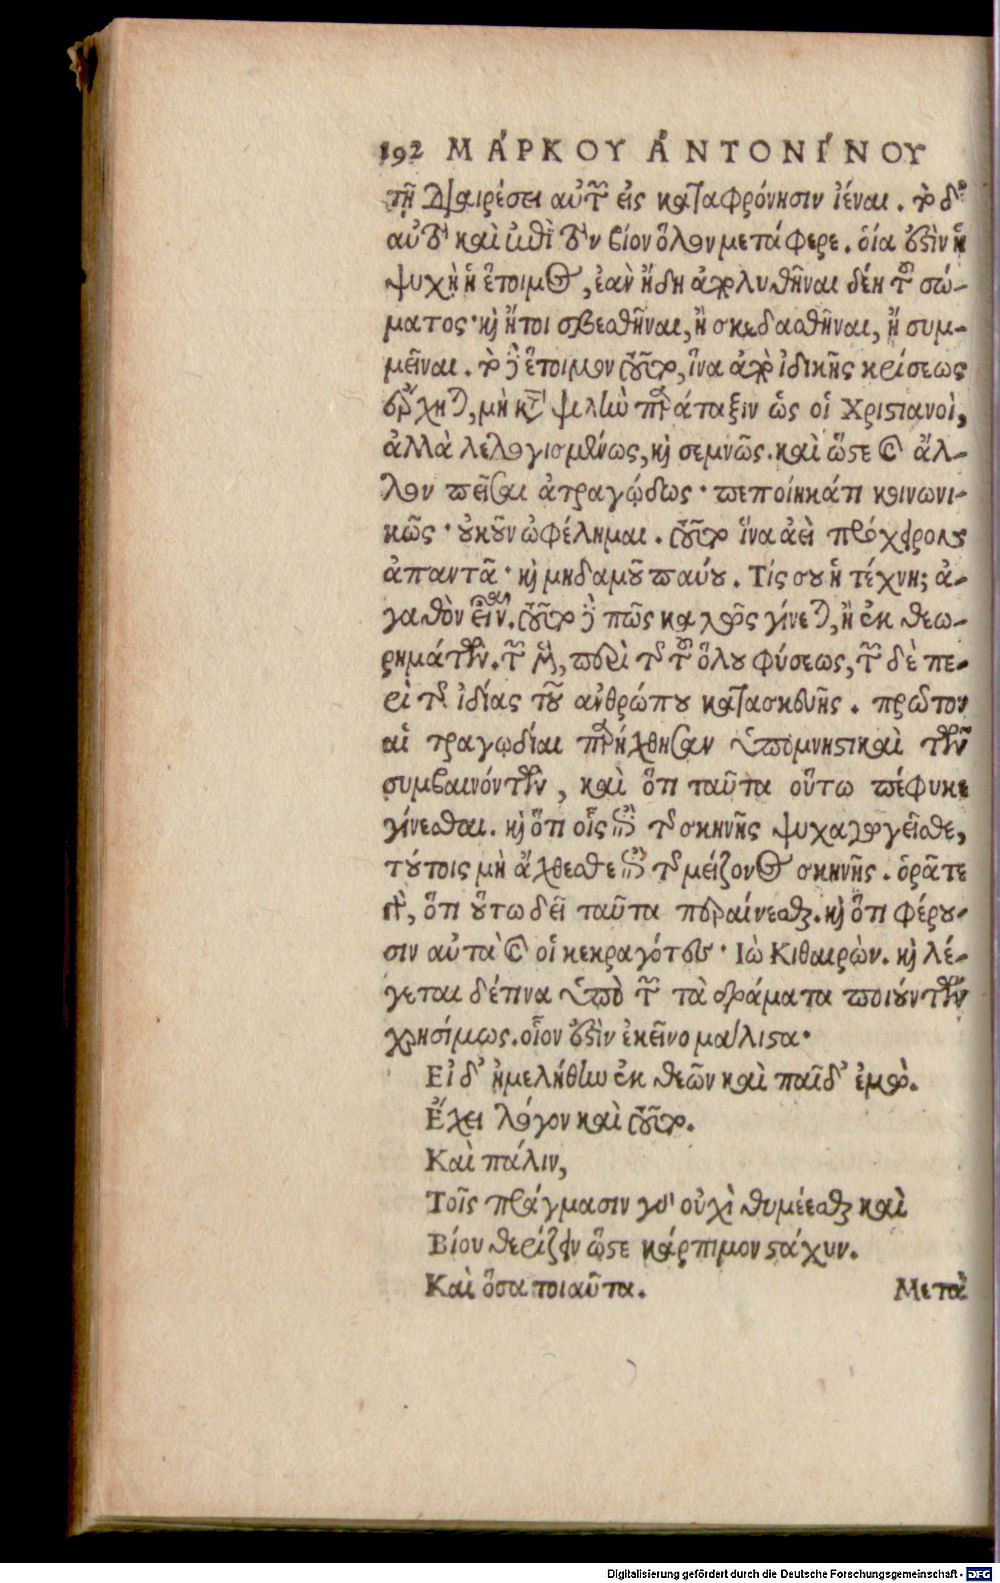 192 ΜΆΡΚΟΥ ἈΝΤΟΝΊΝΟΥ
τῇ διαιρέσει αὐτῶν εἰς καταφρόνησιν ἰέναι. τὸ δ'
αὐτὸ καὶ ἐπὶ τὸν βίον ὅλον μετάφερε. οἵα ἐστὶν ἡ
ψυχὴ ἡ ἕτοιμος, ἐὰν ἤδη ἀπολυθῆναι δέῃ τοῦ σώ-
ματος· καὶ ἤτοι σβεσθῆναι, ἢ σκεδασθῆναι, ἢ συμ-
μεῖναι. τὸ δὲ ἕτοιμον τοῦτο, ἵνα ἀπὸ ἰδικῆς κρίσεως
ἔρχηται, μὴ κατὰ ψιλὴν παράταξιν ὡς οἱ Χριστιανοὶ,
ἀλλὰ λελογισμένως, καὶ σεμνῶς. καὶ ὥστε καὶ ἄλ-
λον πεῖσαι ἀτραγῴδως· πεποίηκάτι κοινωνι-
κῶς· οὐκοῦν ὠφέλημαι. τοῦτο ἵνα ἀεὶ πρόχειρον
ἀπαντᾷ· καὶ μηδαμοῦ παύου. Τίς σου ἡ τέχνη; ἀ-
γαθὸν εἶναι. τοῦτο δὲ πῶς καλῶς γίνεται, ἢ ἐκ θεω-
ρημάτων. τῶν μὲν, περὶ τῆς τοῦ ὅλου φύσεως, τῶν δὲ πε-
ρὶ τῆς ἰδίας τοῦ ἀνθρώπου κατασκευῆς. πρῶτον
αἱ τραγῳδίαι παρήχθησαν ὑπομνηστικαὶ τῶν
συμβαινόντων, καὶ ὅτι ταῦτα οὕτω πέφυκε
γίνεσθαι. καὶ ὅτι οἷς ἐπὶ τῆς σκηνῆς ψυχαγωγεῖσθε,
τούτοις μὴ ἄχθεσθε ἐπὶ τῆς μείζονος σκηνῆς. ὁρᾶτε
γὰρ, ὅτι οὕτω δεῖ ταῦτα περαίνεσθαι. καὶ ὅτι φέρου-
σιν αὐτὰ καὶ οἱ κεκραγότες· Ἰὼ Κιθαιρὼν. καὶ λέ-
γεται δέ τινα ὑπὸ τῶν τὰ δράματα ποιούντων
χρησίμως. οἷον ἐστὶν ἐκεῖνο μάλιστα·
Εἰ δ' ἠμελήθην ἐκ θεῶν καὶ παῖδ' ἐμὼ.
Ἔχει λόγον καὶ τοῦτο.
Καὶ πάλιν,
Τοῖς πράγμασιν γὰρ οὐχὶ θυμέεσθαι καὶ
Βίον θερίζειν ὥστε κάρπιμον στάχυν.
Καὶ ὅσα τοιαῦτα. Μετὰ
Digitalisierung gefördert durch die Deutsche Forschungsgemeinschaft - DFG